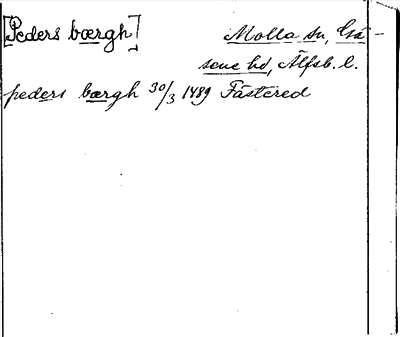 [Peders bœrgh] Molla sn, Gä-
sene hd, Älfsb. l.
peders bœrgh 30/3 1489 Fästered